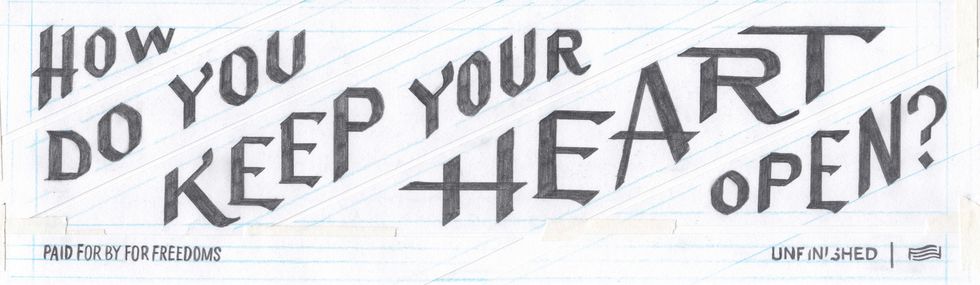 HOW
DO YOU
KEEP YOUR
HEART
OPEN?
PAID FOR BY FOR FREEDOMS
UNFINISHED